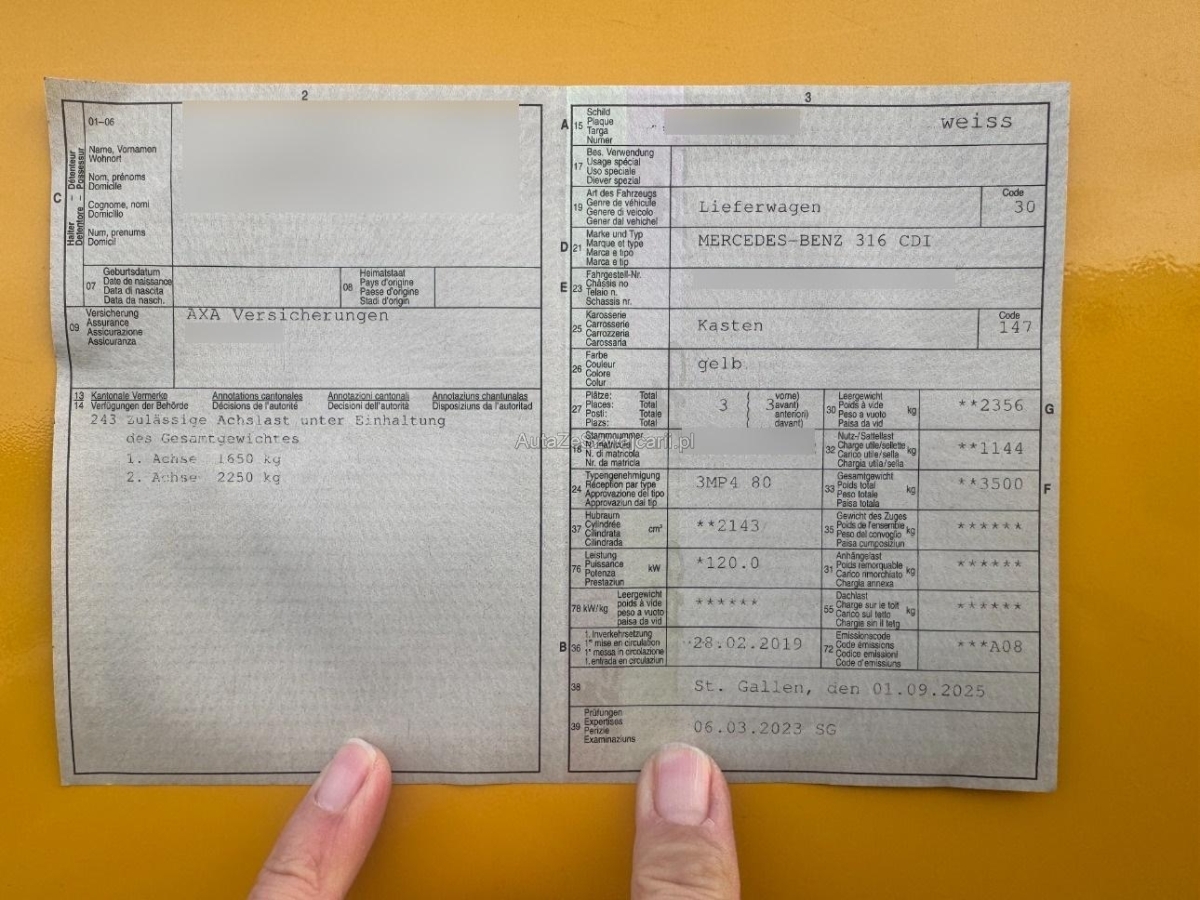 2
01-06
Name, Vornamen
Wohnort
Nom, prénoms
Domicile
Cognome, nomi
Domicilio
Num, prenums
Domicil
C
Halter – Détenteur
Detentore – Possessur
07
Geburtsdatum
Date de naissance
Data di nascita
Data da nasch.
08
Heimatstaat
Pays d'origine
Paese d'origine
Stadi d'origin
09
Versicherung
Assurance
Assicurazione
Assicuranza
AXA Versicherungen
13 Kantonale Vermerke Annotations cantonales Annotazioni cantonali Annotaziuns chantunalas
14 Verfügungen der Behörde Décisions de l'autorité Decisioni dell'autorità Disposiziuns da l'autoritad
243 Zulässige Achslast unter Einhaltung
des Gesamtgewichtes
1. Achse 1650 kg
2. Achse 2250 kg
3
A 15
Schild
Plaque
Targa
Numer
weiss
17
Bes. Verwendung
Usage spécial
Uso speciale
Diever spezial
19
Art des Fahrzeugs
Genre de véhicule
Genere di veicolo
Gener dal vehichel
Lieferwagen
Code
30
D 21
Marke und Typ
Marque et type
Marca e tipo
Marca e tip
MERCEDES-BENZ 316 CDI
E 23
Fahrgestell-Nr.
Châssis no
Telaio n.
Schassis nr.
25
Karosserie
Carrosserie
Carrozzeria
Carossaria
Kasten
Code
147
26
Farbe
Couleur
Colore
Colur
gelb
27
Plätze: Total
Places: Total
Posti: Totale
Plazs: Total
3
3
vorne)
avant)
anteriori)
davant)
30
Leergewicht
Poids à vide
Peso a vuoto
Paisa da vid
kg
**2356
G
18
Stammnummer
No matricule
N. di matricola
Nr. da matricla
32
Nutz-/Sattellast
Charge utile/sellette
Carico utile/sella
Chargia utila/sella
kg
**1144
24
Typengenehmigung
Réception par type
Approvazione del tipo
Approvaziun dal tip
3MP4 80
33
Gesamtgewicht
Poids total
Peso totale
Paisa totala
kg
**3500
F
37
Hubraum
Cylindrée
Cilindrata
Cilindrada
cm³
**2143
35
Gewicht des Zuges
Poids de l'ensemble
Peso del convoglio
Paisa cumposiziun
kg
******
76
Leistung
Puissance
Potenza
Prestaziun
kW
*120.0
31
Anhängelast
Poids remorquable
Carico rimorchiato
Chargia annexa
kg
******
78 kW/kg
Leergewicht
poids à vide
peso a vuoto
paisa da vid
******
55
Dachlast
Charge sur le toit
Carico sul tetto
Chargia sin il tetg
kg
******
B 36
1. Inverkehrsetzung
1re mise en circulation
1a messa in circolazione
1. entrada en circulaziun
28.02.2019
72
Emissionscode
Code émissions
Codice emissioni
Code d'emissiuns
***A08
38
St. Gallen, den 01.09.2025
39
Prüfungen
Expertises
Perizie
Examinaziuns
06.03.2023 SG